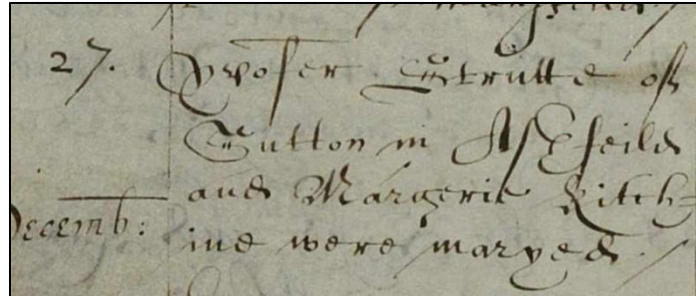 27. Xpofer Strutte of
Sutton in Ashfeild
and Margerie Kitch=
ine were maryed. /
Decemb: